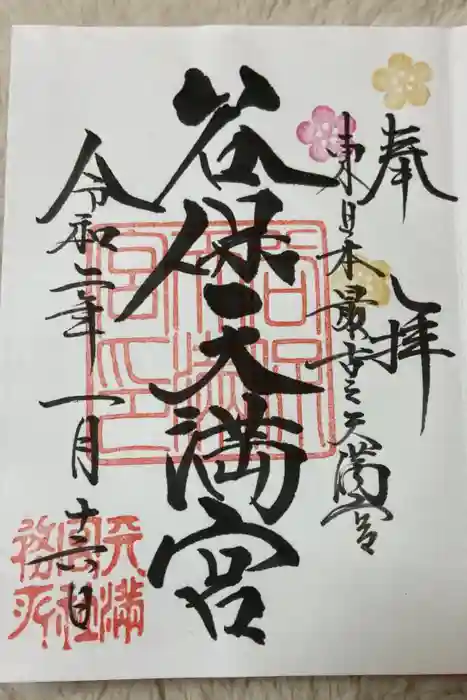 奉拝
東日本最古之天満宮
谷保天満宮
令和二年一月十六日
天満宮社務所